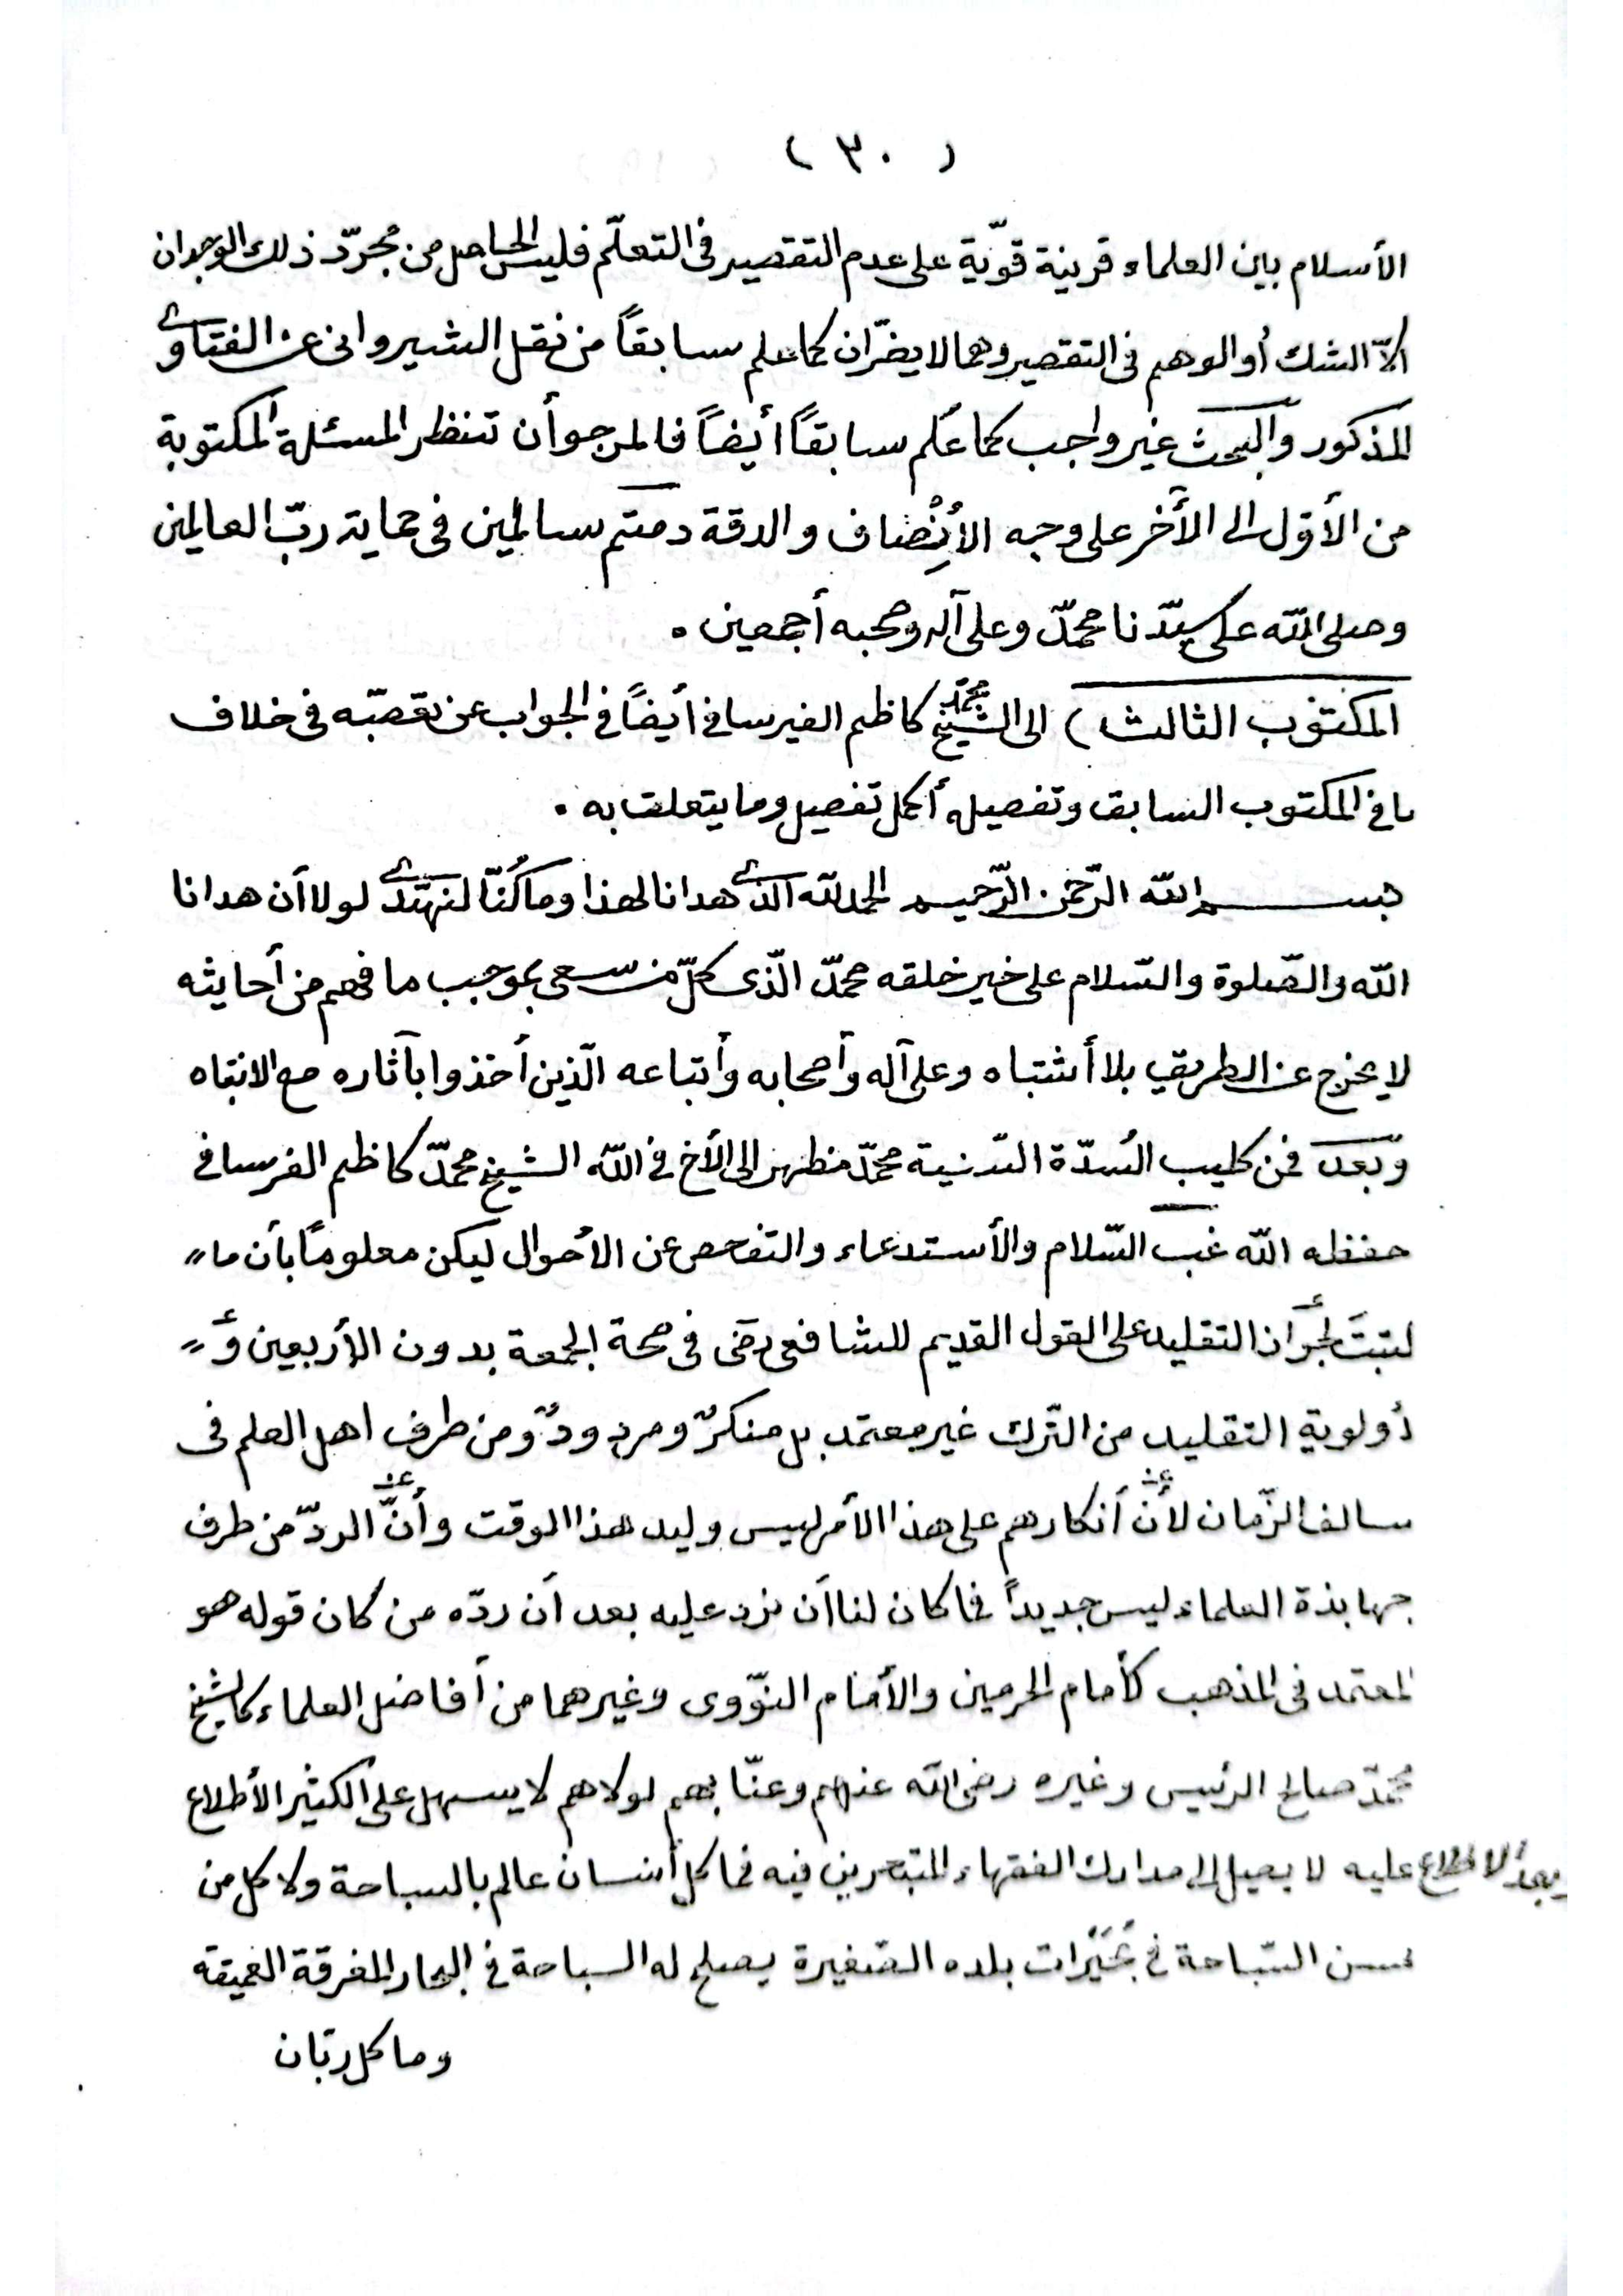 ( ٣٠ )
الأسلام بين العلماء قرينة قوّية على عدم التقصير فى التعلّم فليس الحاصل من مجرّد ذلك الوجدان
الاّ الشك أو الوهم فى التقصير وهما لا يضرّان كما علم سابقاً من نقل الشيروانى عن الفتاوى
المذكور والبحث غير واجب كما علم سابقاً أيضاً فالمرجو أن تنظر المسئلة المكتوبة
من الأوّل الى الأخر على وجه الأنْصاف والدقة دمتم سالمين فى حماية ربّ العالمين
وصلى الله على سيّدنا محمدّ وعلى آله وصحبه أجمعين .
المكتوب الثالث ) الى الشيخ محمّد كاظم الفيرسافى أيضاً فى الجواب عن تعصبّه فى خلاف
ما فى المكتوب السابق وتفصيله أكمل تفصيل وما يتعلق به .
بسم الله الرّحمن الرّحيم الحمد لله الذى هدانا لهذا وما كُنّا لنهتدى لولا أن هدانا
الله والصّلوة والسّلام على خير خلقه محمدّ الّذى كلّ من سعى بموجب ما فهم من أحايثه
لا يخرج عن الطريق بلا أشتباه وعلى آله وأصحابه وأتباعه الّذين أخذوا بآثاره مع الانتباه
وبعد فمن كليب السُدّة السّنية محمدّ مظهر الى الأخ فى الله الشيخ محمدّ كاظم الفرسافى
حفظه الله غب السّلام والأستدعاء والتفحص عن الأحوال ليكن معلوماً بأن ما "
لتبتَ لجواز التقليد على القول القديم للشافعى رضى فى صحة الجمعة بدون الأربعين و "
أولوية التقليد من التّرك غير معتمد بل منكرٌ ومردودٌ ومن طرف اهل العلم فى
سالف الزّمان لأنّ أنكارهم على هذا الأمر ليس وليد هذا الوقت وأنّ الردّ من طرف
جهابذة العلماء ليس جديداً فما كان لنا أن نرد عليه بعد أن ردّه من كان قوله هو
المعتمد فى المذهب كأمام الحرمين والأمام النوّوى وغيرهما من أفاضل العلماء كالشيخ
محمدّ صالح الرئيس وغيره رضى الله عنهم وعنّا بهم لولاهم لا يسهل على الكثير الأطلاع
وبعد الاطلاع عليه لا يصل الى مدارك الفقهاء المتبحرين فيه فما كل أنسان عالم بالسباحة ولا كل من
يحسن السّباحة فى بُحَيْرات بلده الصّغيرة يصلح له السباحة فى البحار المغرقة العميقة
وما كل ربّان